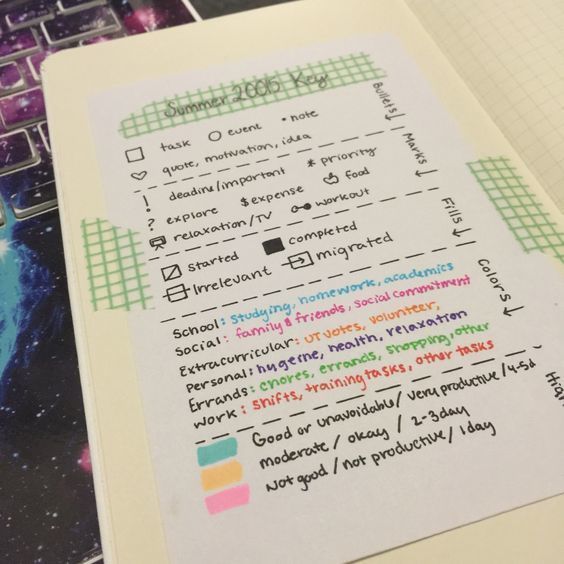 Summer 2005 Key
Bullets
task event note
quote, motivation, idea
Marks
! deadline/important * priority
? explore $ expense food
relaxation/TV workout
Fills
started completed
Irrelevant migrated
Colors
School: studying, homework, academics
Social: family & friends, social commitment
Extracurricular: UT votes, volunteer,
Personal: hygerne, health, relaxation
Errands: chores, errands, shopping, other
Work: shifts, training tasks, other tasks
Good or unavoidable/ very productive/4-5d
moderate/ okay / 2-3day
Not good / not productive / 1day